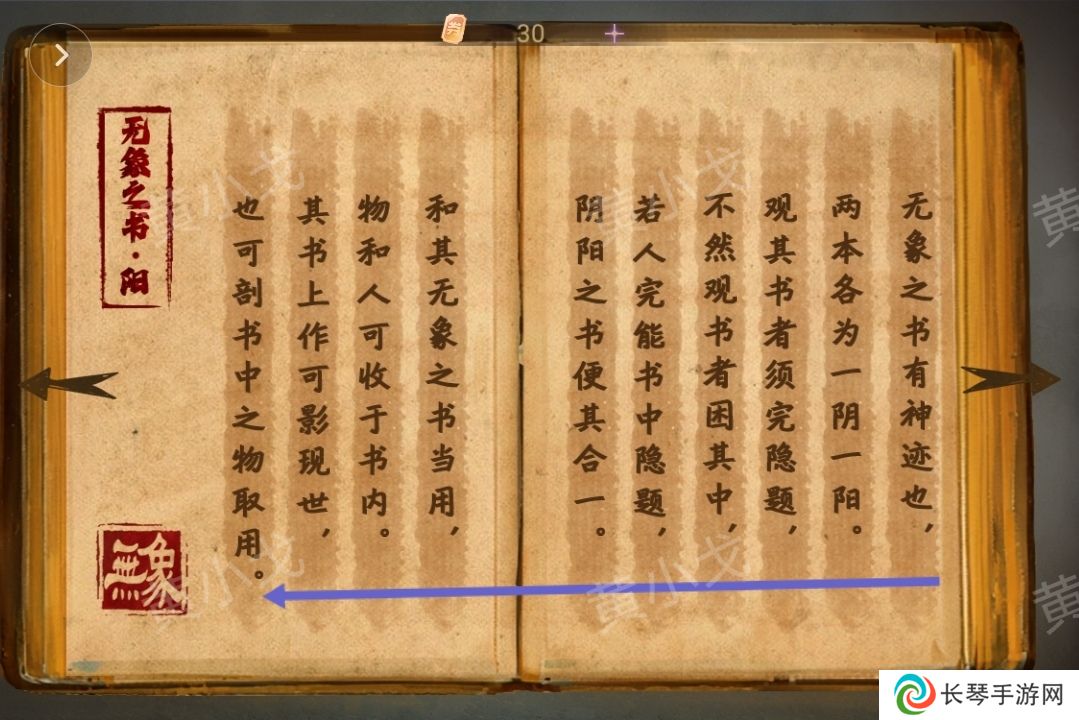 30
无象之书有神迹也，
两本各为一阴一阳。
观其书者须完隐题，
不然观书者困其中，
若人完能书中隐题，
阴阳之书便其合一。
和其无象之书当用，
物和人可收于书内。
其书上作可影现世，
也可剖书中之物取用。
无象之书·阳
無象
黄小戈
黄小戈
黄小戈
黄小戈
黄
黄
长琴手游网